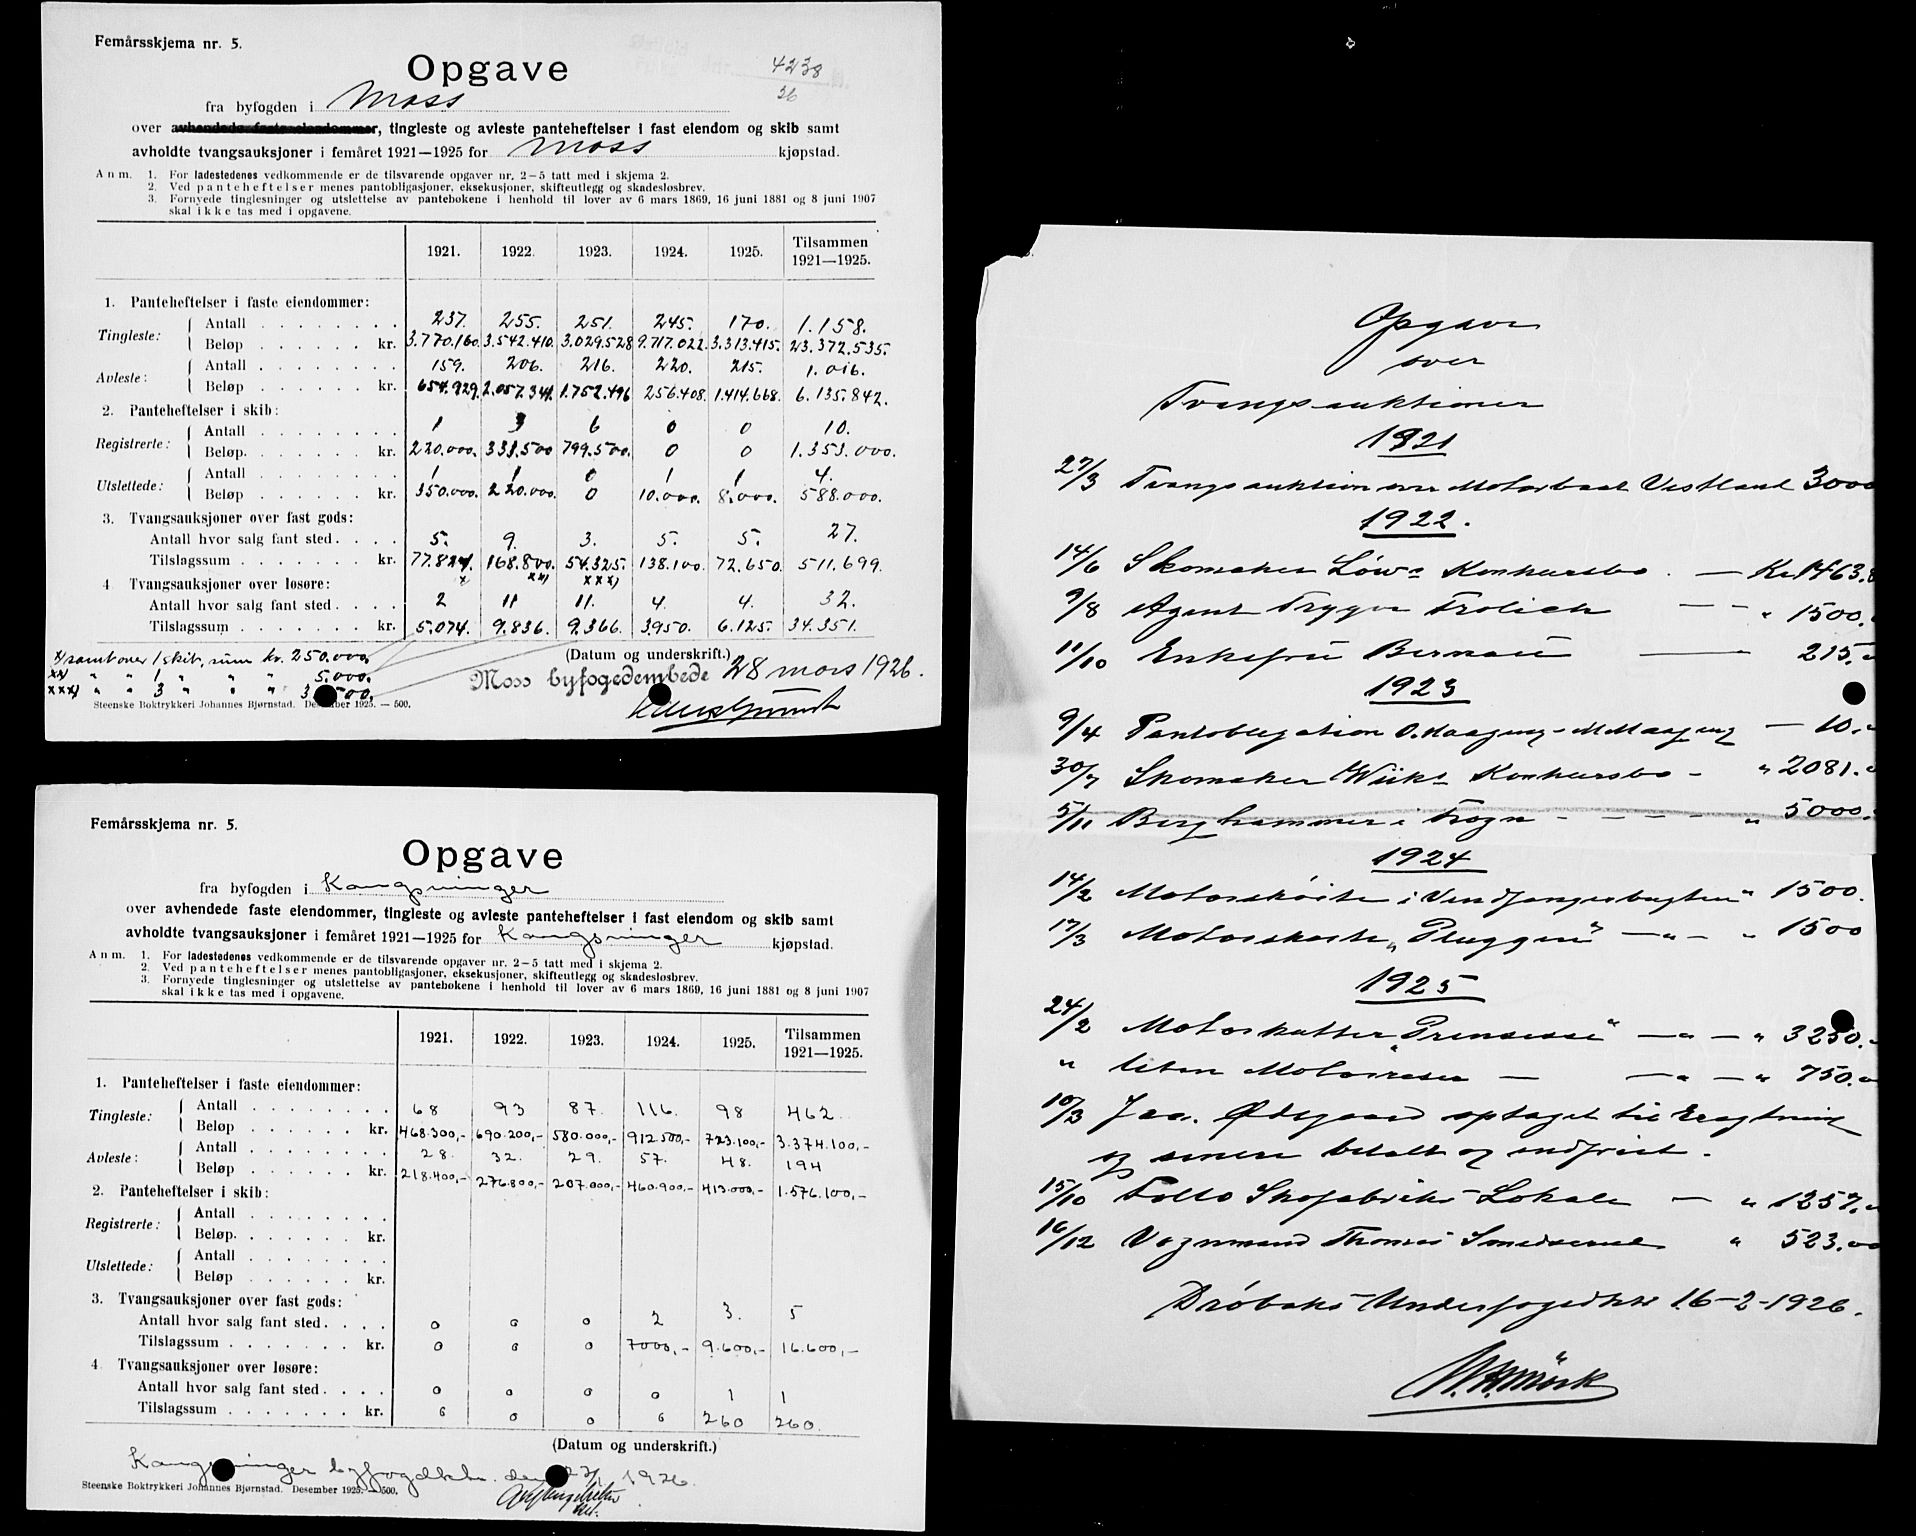 Femårsskjema nr. 5.
Opgave
4238
26
fra byfogden i Moss
over avhendede faste eiendommer, tingleste og avleste panteheftelser i fast eiendom og skib samt
avholdte tvangsauksjoner i femåret 1921—1925 for Moss kjøpstad.
Anm. 1. For ladestedenes vedkommende er de tilsvarende opgaver nr. 2–5 tatt med i skjema 2.
2. Ved panteheftelser menes pantobligasjoner, eksekusjoner, skifteutlegg og skadesløsbrev.
3. Fornyede tinglesninger og utslettelse av pantebøkene i henhold til lover av 6 mars 1869, 16 juni 1881 og 8 juni 1907
skal ikke tas med i opgavene.
1921. 1922. 1923. 1924. 1925. Tilsammen
1921—1925.
1. Panteheftelser i faste eiendommer:
Tingleste: Antall 237. 255. 251. 245. 170. 1.158.
Beløp kr. 3.770.160. 3.542.410. 3.029.528 9.717.022. 3.313.415. 23.372.535.
Avleste: Antall 159. 206. 216. 220. 215. 1.016.
Beløp kr. 654.929. 2.057.341. 1.752.496 256.408. 1.414.668. 6.135.842.
2. Panteheftelser i skib:
Registrerte: Antall 1 3 6 0 0 10.
Beløp. kr. 220.000. 333.500 799.500. 0 0 1.353.000.
Utslettede: Antall 1 1 0 1 1 4.
Beløp kr. 350.000. 220.000. 0 10.000. 8.000. 588.000.
3. Tvangsauksjoner over fast gods:
Antall hvor salg fant sted. 5. 9. 3. 5. 5. 27.
Tilslagssum kr. 77.824. 168.800. 54.325. 138.100. 72.650. 511.699.
x) xx) xxx)
4 Tvangsauksjoner over løsøre:
Antall hvor salg fant sted. 2 11 11. 4. 4. 32.
Tilslagssum kr. 5.074. 9.836. 9.366. 3.950. 6.125. 34.351.
x) samt over 1 skib, sum kr. 250.000.
xx) " " 1 " " " 5.000.
xxx) " " 3 " " " 3 500.
(Datum og underskrift.)
Moss byfogedembede 28 mars 1926.
Steenske Boktrykkeri Johannes Bjørnstad. Desember 1925. — 500.
Femårsskjema nr. 5.
Opgave
fra byfogden i Kongsvinger
over avhendede faste eiendommer, tingleste og avleste panteheftelser i fast eiendom og skib samt
avholdte tvangsauksjoner i femåret 1921—1925 for Kongsvinger kjøpstad.
Anm. 1. For ladestedenes vedkommende er de tilsvarende opgaver nr. 2–5 tatt med i skjema 2.
2. Ved panteheftelser menes pantobligasjoner, eksekusjoner, skifteutlegg og skadesløsbrev.
3. Fornyede tinglesninger og utslettelse av pantebøkene i henhold til lover av 6 mars 1869, 16 juni 1881 og 8 juni 1907
skal ikke tas med i opgavene.
1921. 1922. 1923. 1924. 1925. Tilsammen
1921—1925.
1. Panteheftelser i faste eiendommer:
Tingleste: Antall 68 93 87. 116. 98 462
Beløp kr. 468.300,- 690.200,- 580.000,- 912.500,- 723.100,- 3.374.100,-
Avleste: Antall 28. 32. 29. 57. 48. 194
Beløp kr. 218.400,- 276.800,- 207.000,- 460.900,- 413.000,- 1.576.100,-
2. Panteheftelser i skib:
Registrerte: Antall
Beløp. kr.
Utslettede: Antall
Beløp kr.
3. Tvangsauksjoner over fast gods:
Antall hvor salg fant sted. 0 0 0 2 3. 5
Tilslagssum kr. 0 0 0 7000,- 9.600,- 16.600,-
4 Tvangsauksjoner over løsøre:
Antall hvor salg fant sted. 0 0 0 0 1 1
Tilslagssum kr. 0 0 0 0 260 260.
(Datum og underskrift.)
Kongsvinger byfogdktr. den 1926.
Steenske Boktrykkeri Johannes Bjørnstad. Desember 1925. — 500.
Opgave
over
Tvangsauktioner
1921
27/3 Tvangsauktion over Motorbaat Vestland 3000
1922.
14/6 Skomaker Löws Konkursbo. — Kr 1463.
9/8 Agent Trygve Frolich — — " 1500.
11/10 Enkefru Bernau — 215.
1923
9/4 Pantobligation O. Haagens - — 10.
30/7 Skomaker Wiiks Konkursbo - " 2081.
5/11 Berghammer i Frogn - - - - " 5000.
1924
14/2 Motorskøite i Vindfangerbugten " 1500.
17/3 Motorskøite „Pluggen" — " — " 1500
1925
24/2 Motorkutter „Prinsesse" — " — " 3250.
" liten Motorsnekke — — " — " 750.
10/3 Jac. Ødegaard optaget til Eragtning
og senere betalt og indfriet.
15/10 Follo Skofabriks Lokale — " 1257.
16/12 Vognmand Thomas " 523.00
Dröbaks Underfogedktr 16-2-1926.